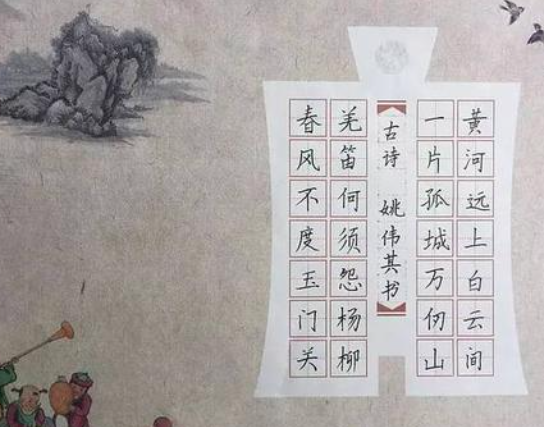 黄河远上白云间
一片孤城万仞山
古诗 姚伟其书
羌笛何须怨杨柳
春风不度玉门关